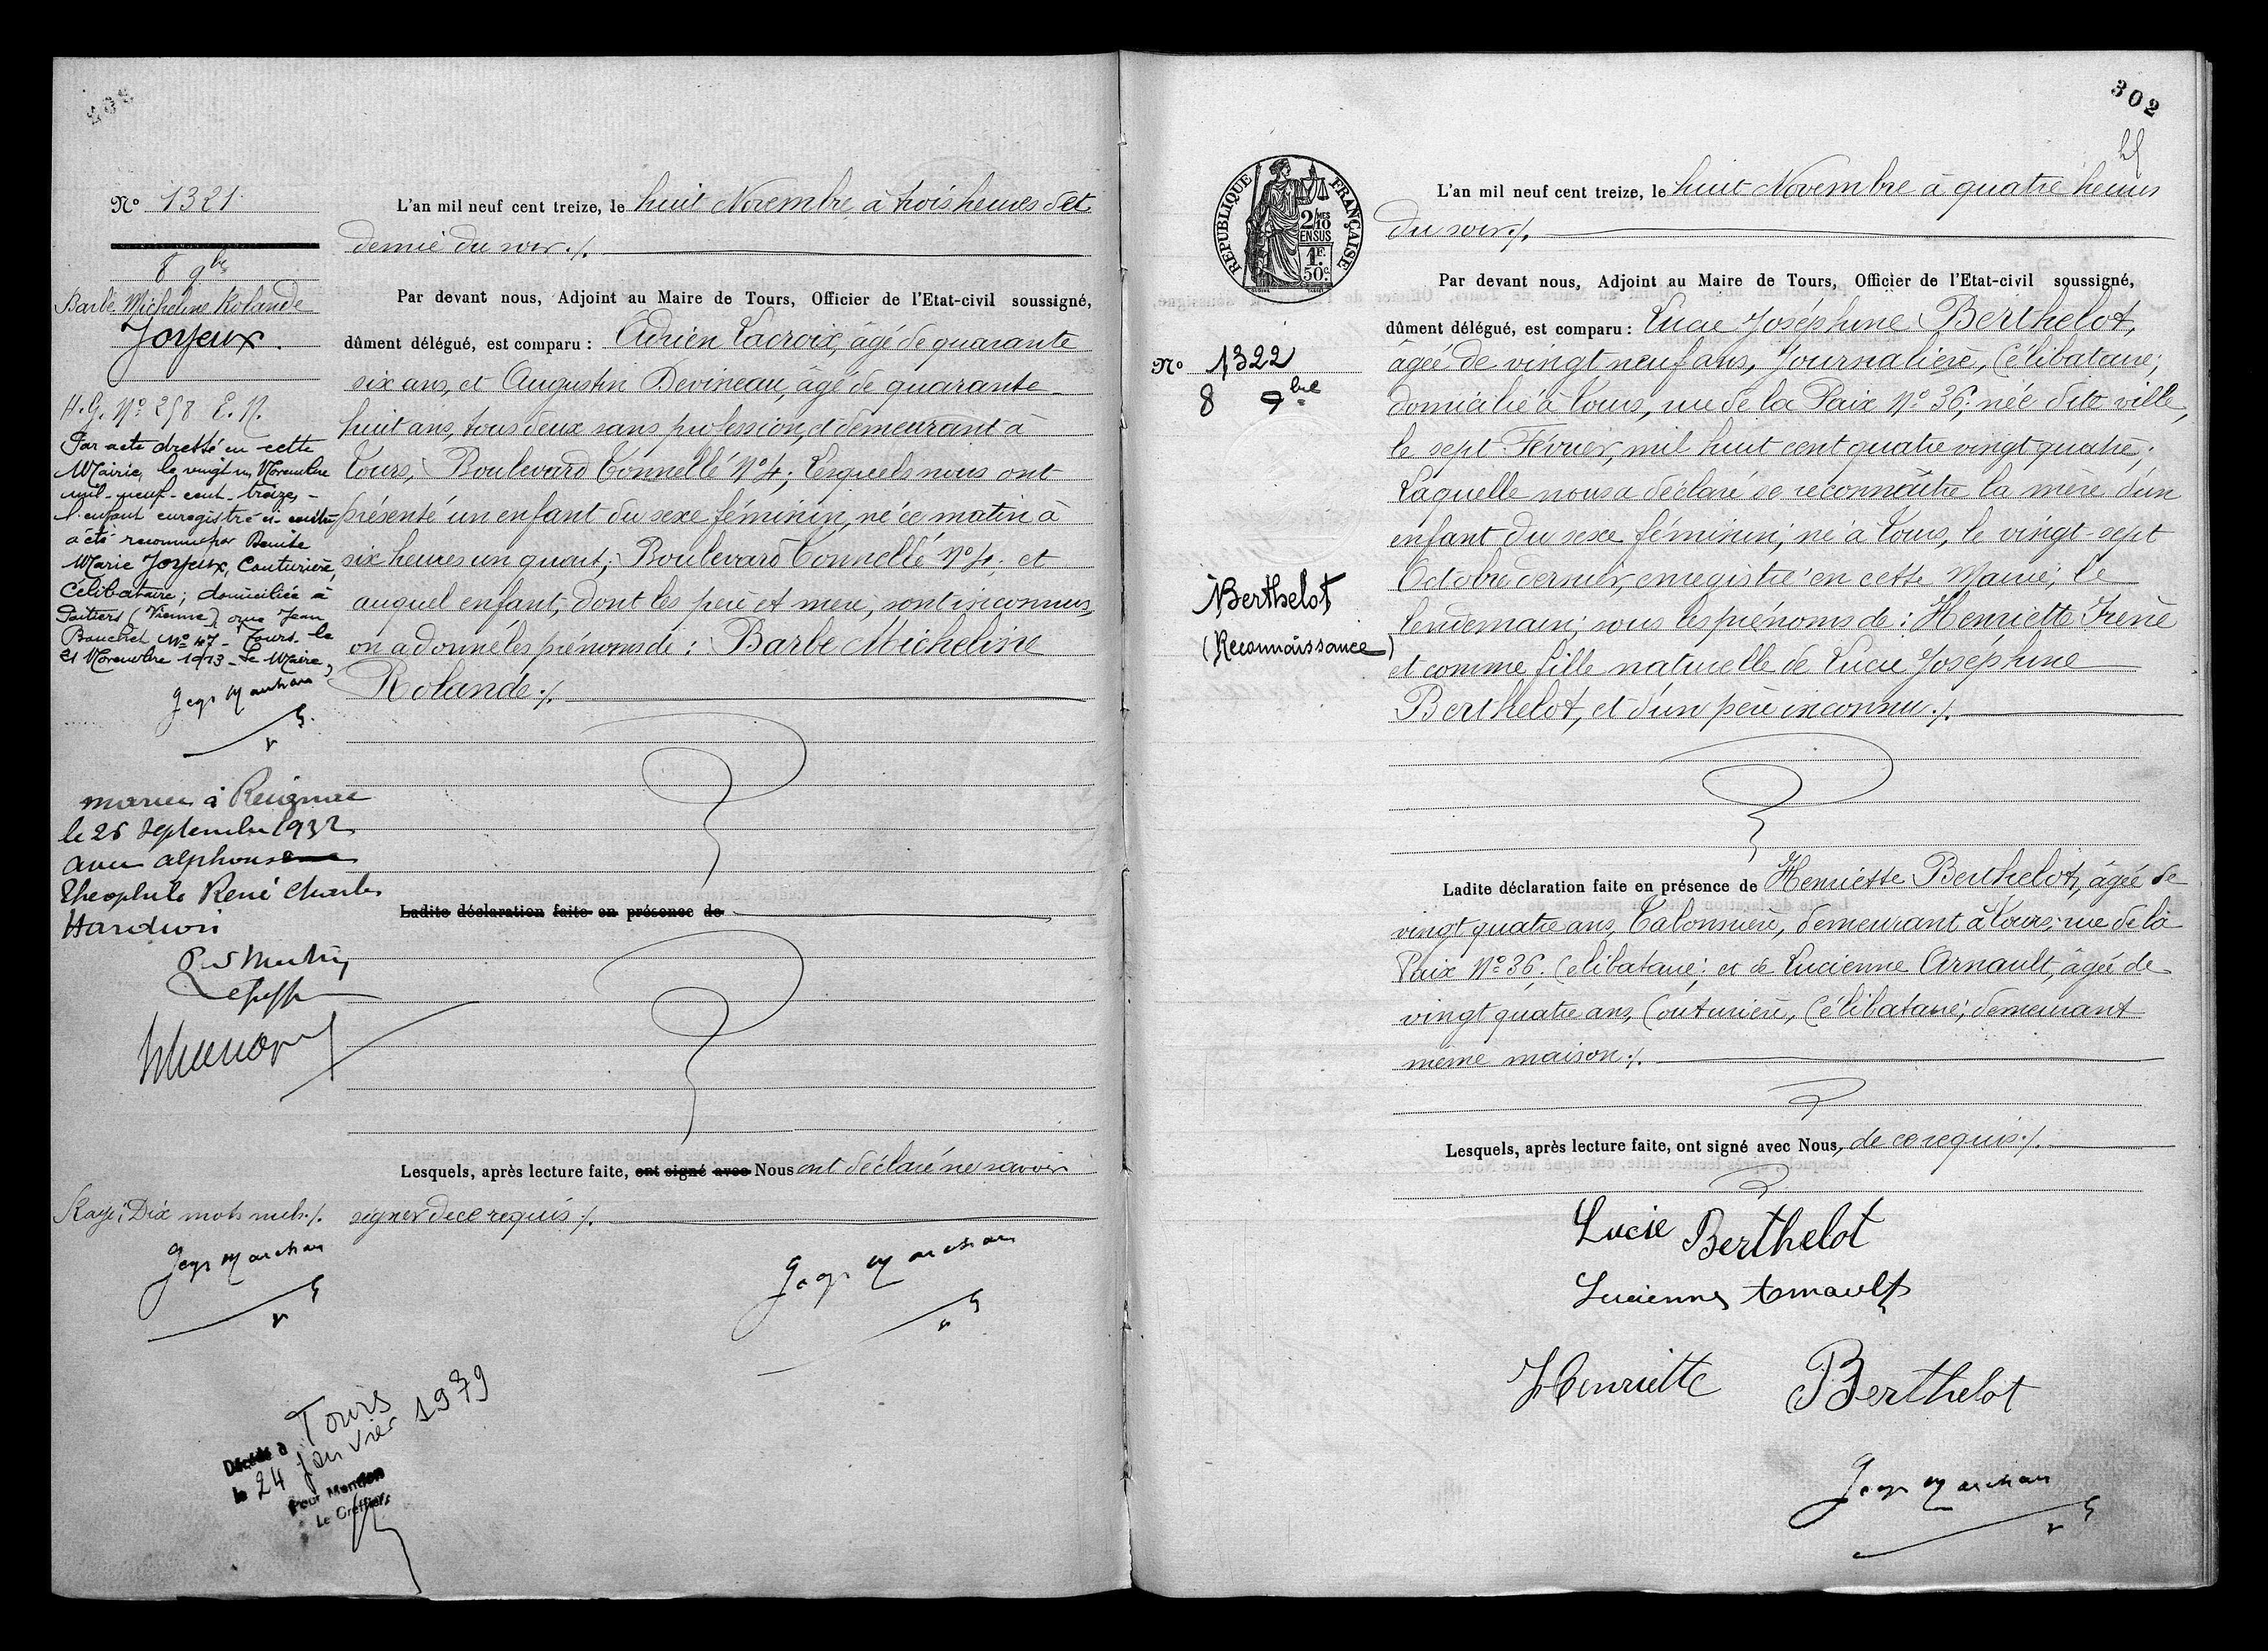 Nº 1321
8 9bre
Barbe Micheline Rolande
Joyeux.
H.G. Nº 258 E.N.
Par acte dressé en cette
Mairie, le vingt un Novembre
mil-neuf-cent-treize,-
l'enfant enregistré ci-contre
a été reconnu par Benite
Marie Joyeux, Couturière,
Célibataire; domiciliée à
Poitiers (Vienne) rue Jean
Bouchet Nº 47- Tours- le
21 Novembre 1913- Le Maire,
mariée à Reignac
le 26 Septembre 1932
avec Alphonse
Théophile René Charles
Hardion
Rayé; Dix mots nuls./.
L'an mil neuf cent treize, le huit Novembre à trois heures et
demie du soir./.
Par devant nous, Adjoint au Maire de Tours, Officier de l'Etat-civil soussigné,
dûment délégué, est comparu : Adrien Lacroix, âgé de quarante
six ans, et Augustin Devineau, âgé de quarante-
huit ans, tous deux sans profession, et demeurant à
Tours, Boulevard Tonnellé Nº 4; Lesquels nous ont
présenté un enfant du sexe féminin, né ce matin à
six heures un quart; Boulevard Tonnellé Nº 4; et
auquel enfant, dont les père et mère, sont inconnus,
on a donné les prénoms de : Barbe Micheline
Rolande./.
Ladite déclaration faite en présence de
Lesquels, après lecture faite, ont signé avec Nous ont déclaré ne savoir
signer de ce requis./.
Décédé à Tours
le 24 janvier 1979
Pour Mention
Le Greffier
302
REPUBLIQUE FRANÇAISE
2/10 MES
EN SUS
1F.
50c
Nº 1322
8 9bre
Berthelot
(Reconnaissance)
L'an mil neuf cent treize, le huit Novembre à quatre heures
du soir./.
Par devant nous, Adjoint au Maire de Tours, Officier de l'Etat-civil soussigné,
dûment délégué, est comparu : Lucie Joséphine Berthelot,
âgée de vingt neuf ans, Journalière, Célibataire;
domicilié à Tours, rue de la Paix Nº 36; née dite ville,
le sept Février, mil huit cent quatre vingt quatre;
Laquelle nous a déclaré se reconnaître la mère d'un
enfant du sexe féminin; né à Tours, le vingt-sept
Octobre dernier, enregistré en cette Mairie; le
lendemain; sous les prénoms de : Henriette Irène
et comme fille naturelle de Lucie Josephine
Berthelot, et d'un père inconnu./.
Ladite déclaration faite en présence de Henriette Berthelot, âgée de
vingt quatre ans, Talonnière, demeurant à Tours; rue de la
Paix Nº 36. Célibataire; et de Lucienne Arnault, âgée de
vingt quatre ans, Couturière, Célibataire; demeurant
même maison./.
Lesquels, après lecture faite, ont signé avec Nous, de ce requis./.
Lucie Berthelot
Lucienne Arnault
Henriette Berthelot